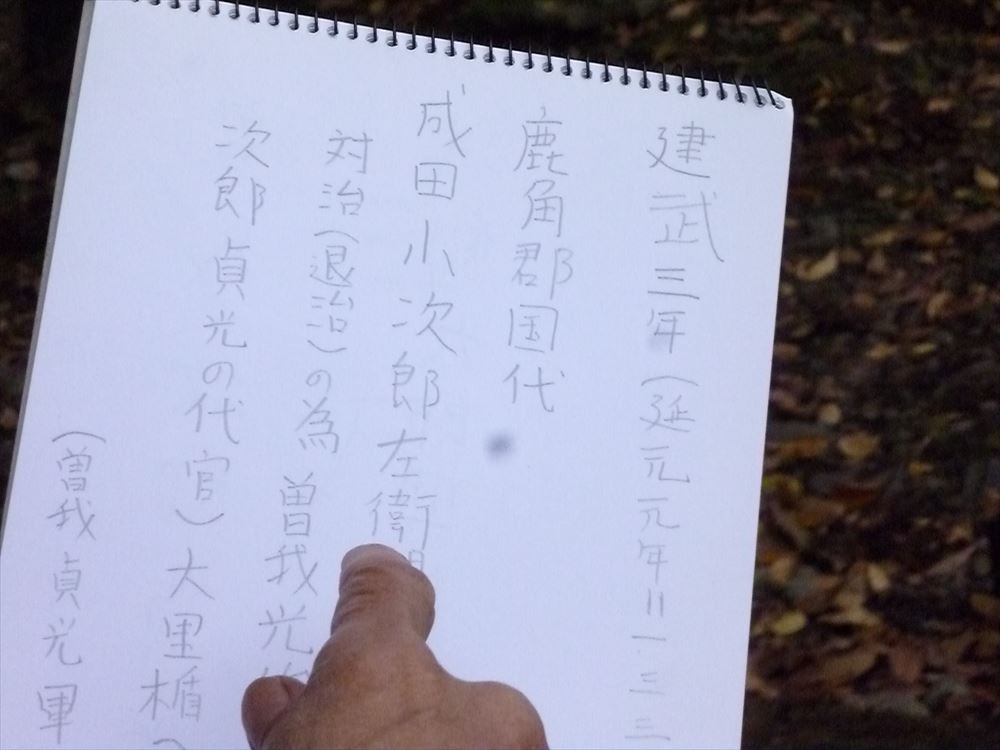 建武三年(延元元年=一三三
鹿角郡国代
成田小次郎左衛
対治(退治)の為曽我光
次郎貞光の代官)大里楯
(曽我貞光軍